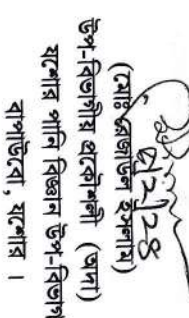 (মোঃ রেজাউল ইসলাম)
উপ-বিভাগীয় প্রকৌশলী (অদা)
যশোর পানি বিজ্ঞান উপ-বিভাগ
বাপাউবো, যশোর ।